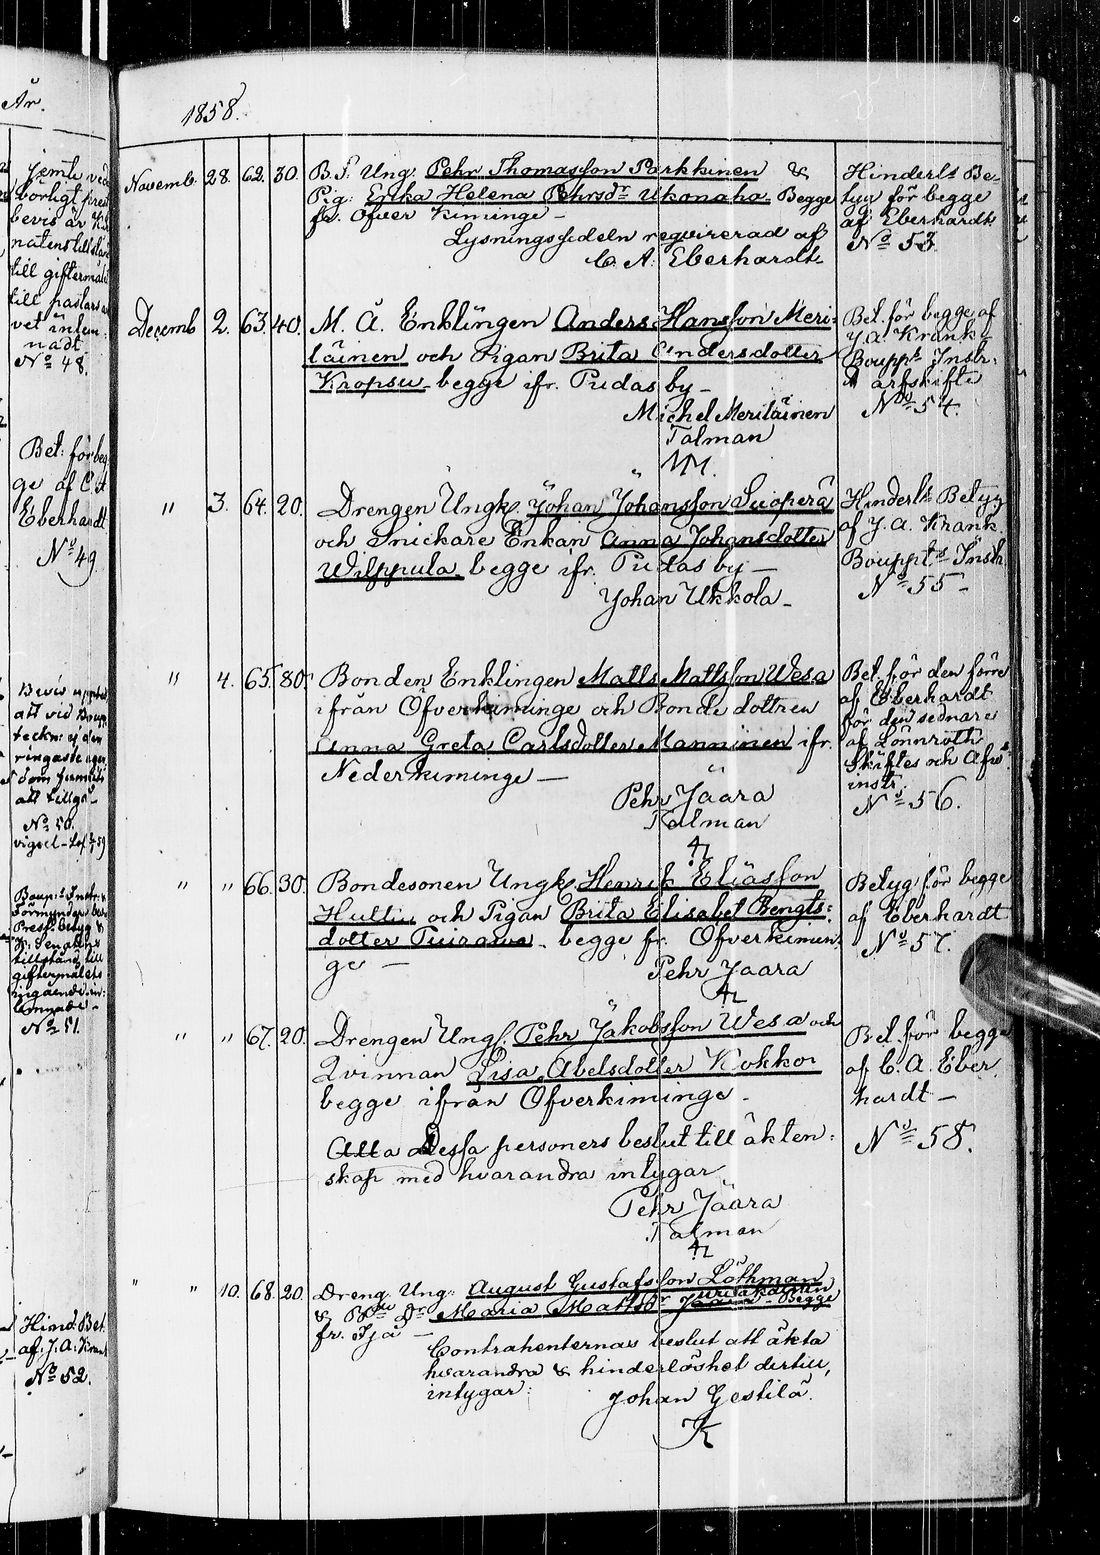 År.
Jemte ved
börligt prest
bevis är K
natens tillstånd
till giftermål
till pastors
vet inlem
nadt
No 48.
Bet: för beg
ge af C. A
Eberhardt
No 49
att vid Boupp
teckn: ej den
ringaste egen
dom funnits
att tillgå
No 50.
Boupts Instr: &
Förmyndare bevis
Prest. betyg &
K. Senatens
tillstånd till
giftermålets
ingående in-
lemnade
No 51.
Hind. Bet.
af J. A. Krank
No 52.
1858.
Novemb. 28. 62. 30. B. S. Ung: Pehr Thomasson Parkkinen &
Pig: Erika Helena Pehrsdr Ukonaho Begge
fr. Öfver Kiminge
Lysningssedeln reqvirerad af
C. A. Eberhardt
Hinderls Be-
tyg för begge
af Eberhardt
No 53.
Decemb 2. 63. 40. M. Å. Enklingen Anders Hansson Meri-
läinen och Pigan Brita Andersdotter
Kropsu begge ifr. Pudas by
Michel Meriläinen
Talman
MM.
Bet. för begge af
J. A. Krank
Bouppt Instr:
& arfskifte
No 54.
" 3. 64. 20. Drengen Ungk. Johan Johansson Suoperä
och Snickare Enkan Anna Johansdotter
Wilppula begge ifr. Pudas by
Johan Ukkola
Hinderls Betyg
af J. A. Krank
Bouppts Instr.
No 55
" 4. 65. 80. Bonden Enklingen Matts Mattsson Wesa
ifrån Öfverkiminge och Bonde dottren
Anna Greta Carlsdotter Manninen ifr.
Nederkiminge
Pehr Jäära
Talman
Bet. för den förre
af Eberhardt
för den sednare
af Lönnroth
Skiftes och Afv:s
instr.
No 56.
" " 66. 30. Bondesonen Ungk. Henrik Eliasson
Huttu och Pigan Brita Elisabet Bengts-
dotter Tuirawa begge fr. Öfverkimin
ge
Pehr Jaara
Betyg för begge
af Eberhardt
No 57.
" " 67. 20. Drengen Ung. Pehr Jakobsson Wesa och
Qvinnan Lisa Abelsdotter Kokko
begge ifrån Öfverkiminge
Alla Dessa personers beslut till äkten-
skap med hvarandra intygar
Pehr Jäära
Talman
Bet. för begge
af C. A. Eber
hardt
No 58.
" " 10. 68. 20. Dreng. Ung: August Gustafsson Löthman
& Bde Dr Maria Mattsdr Juurikkainen Begge
fr. Ijå
Contrahenternas beslut att äkta
hvarandra & hinderlöshet dertill,
intygar:
Johan Gestilä.
K